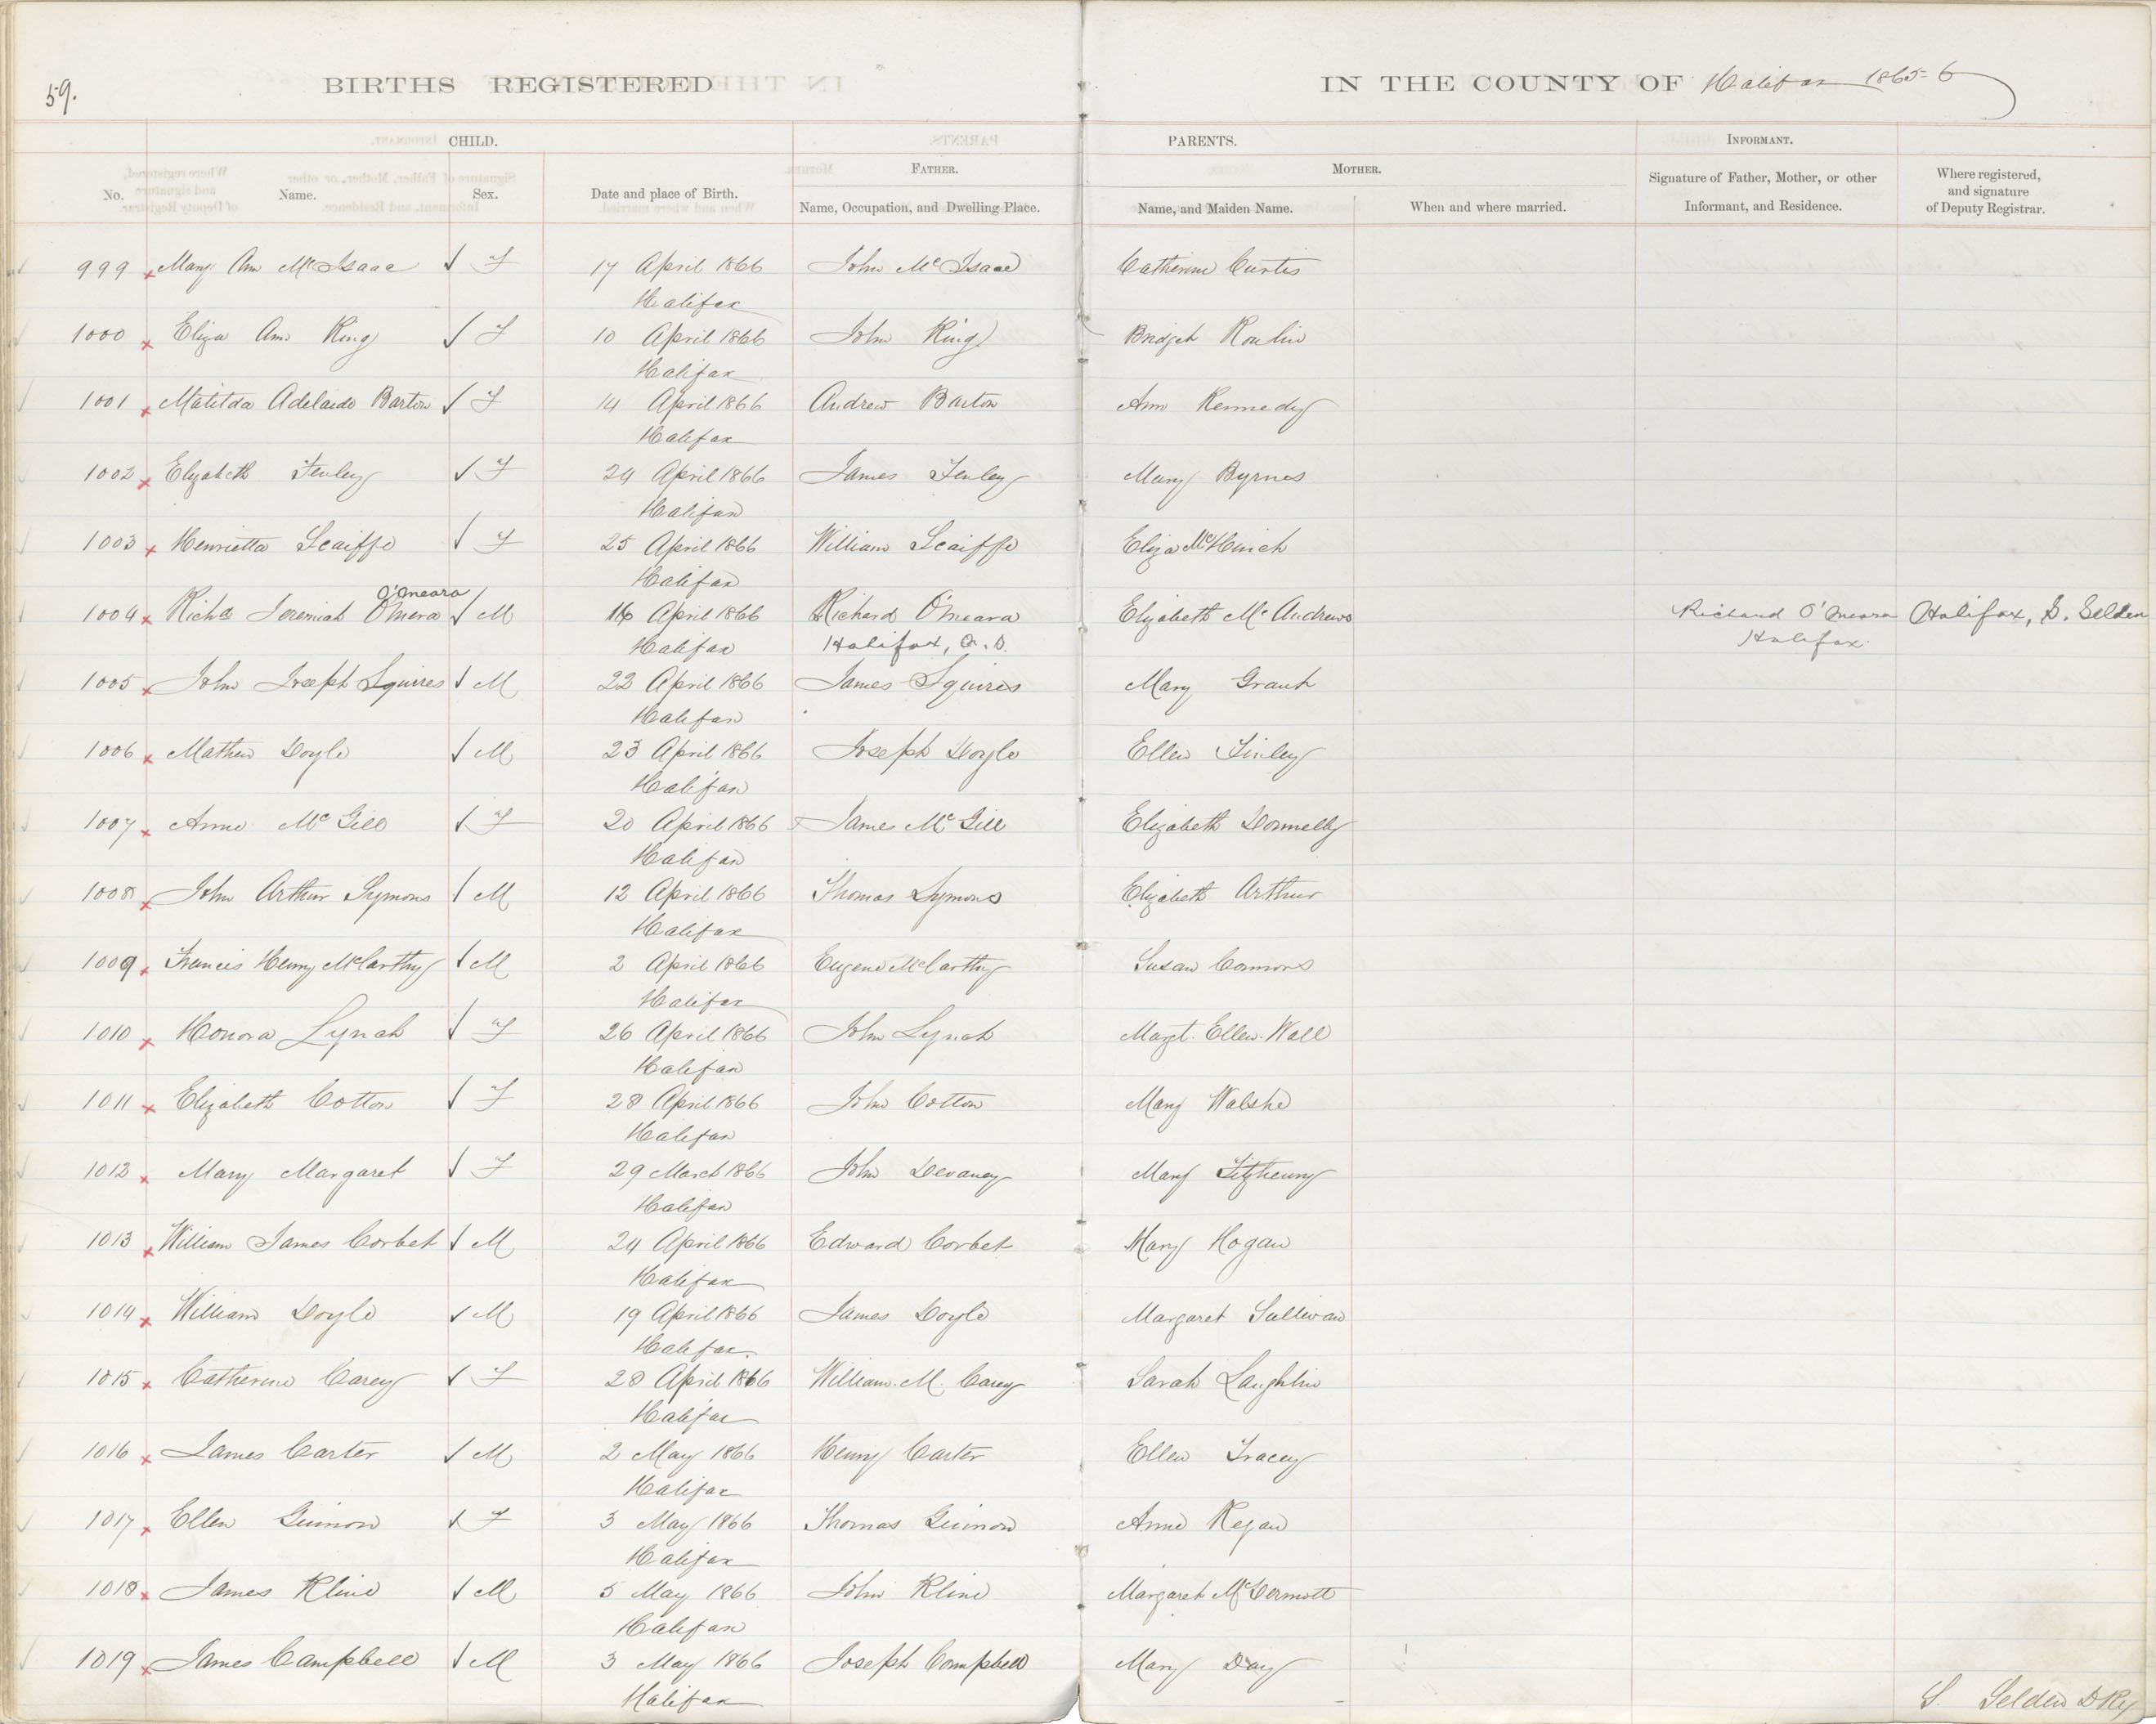 59.
BIRTHS REGISTERED IN THE COUNTY OF Halifax 1865-6
CHILD. PARENTS. INFORMANT.
FATHER. MOTHER.
No. Name. Sex. Date and place of Birth. Name, Occupation, and Dwelling Place. Name, and Maiden Name. When and where married. Signature of Father, Mother, or other Informant, and Residence. Where registered, and signature of Deputy Registrar.
999 x Mary Ann McIsaac ✓ F 17 April 1866 John McIsaac Catherine Curtis
Halifax
1000 x Eliza Ann King ✓ F 10 April 1866 John King Bridget
Halifax
1001 x Matilda Adelaide Barton ✓ F 14 April 1866 Andrew Barton Ann Kennedy
Halifax
1002 x Elizabeth Fenley ✓ F 24 April 1866 James Fenley Mary Byrnes
Halifax
1003 x Henrietta Scaiffe ✓ F 25 April 1866 William Scaiffe Eliza
Halifax
O'Meara
1004 x Richd Jeremiah O'Mera ✓ M 16 April 1866 Richard O'Meara Elizabeth McAndrews Richard O'Meara Halifax, S. Selden
Halifax Halifax, Halifax.
1005 x John Joseph Squires ✓ M 22 April 1866 James Squires Mary Grant
Halifax
1006 x Mathew Doyle ✓ M 23 April 1866 Joseph Doyle Ellen Finley
Halifax
1007 x Anne McGill ✓ F 20 April 1866 James McGill Elizabeth Donnelly
Halifax
1008 x John Arthur Symons ✓ M 12 April 1866 Thomas Symons Elizabeth Arthur
Halifax
1009 x Francis Henry McCarthy ✓ M 2 April 1866 Eugene McCarthy Susan Connors
Halifax
1010 x Honora Lynch ✓ F 26 April 1866 John Lynch Margt. Ellen Wall
Halifax
1011 x Elizabeth Cotton ✓ F 28 April 1866 John Cotton Mary Walshe
Halifax
1012 x Mary Margaret ✓ F 29 March 1866 John Devaney Mary Fitzhenry
Halifax
1013 x William James Corbet ✓ M 24 April 1866 Edward Corbet Mary Hogan
Halifax
1014 x William Doyle ✓ M 19 April 1866 James Doyle Margaret Sullivan
Halifax.
1015 x Catherine Carey ✓ F 28 April 1866 William M. Carey Sarah Laughlin
Halifax
1016 x James Carter ✓ M 2 May 1866 Henry Carter Ellen Tracey
Halifax
1017 x Ellen Guinon ✓ F 3 May 1866 Thomas Guinon Anne Regan
Halifax
1018 x James Kline ✓ M 5 May 1866 John Kline Margaret McDermott
Halifax
1019 x James Campbell ✓ M 3 May 1866 Joseph Campbell Mary Day
Halifax
S. Selden D Rg